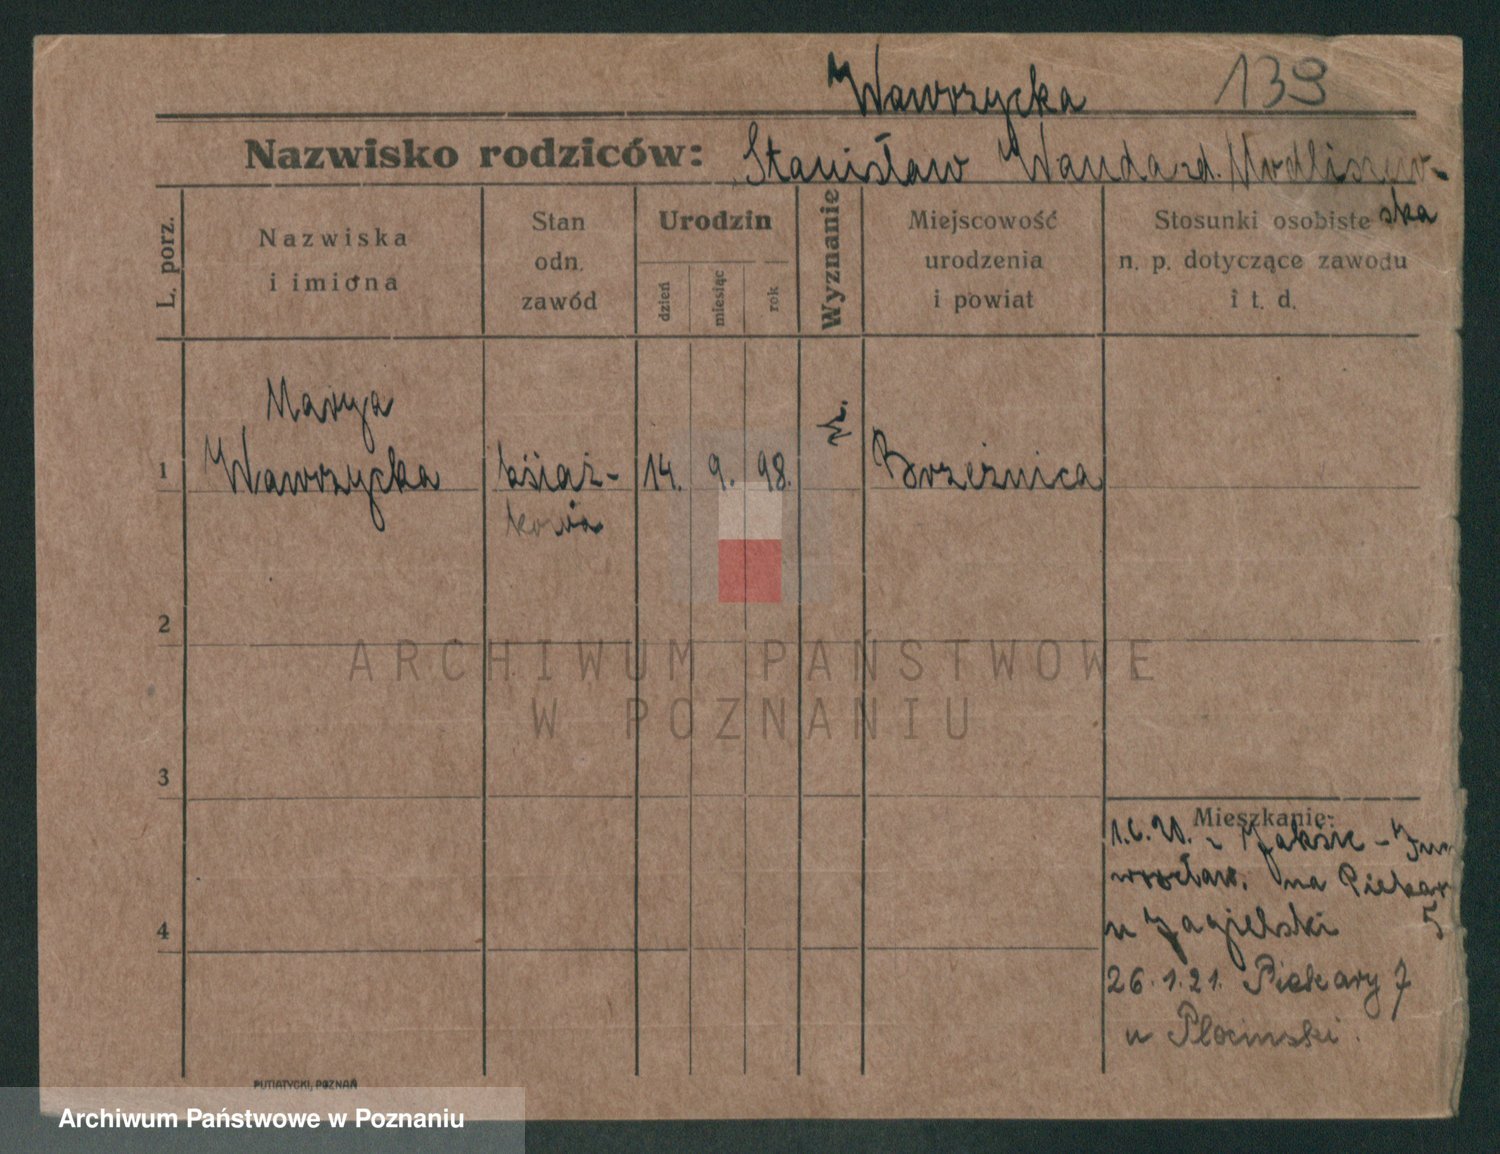 Wawrzycka 139
Nazwisko rodziców: Stanisław Wanda zd. Modliszew-
ska
L. porz.
Nazwiska
i imiona
Stan
odn.
zawód
Urodzin
dzień
miesiąc
rok
Wyznanie
Miejscowość
urodzenia
i powiat
Stosunki osobiste
n. p. dotyczące zawodu
i t. d.
Marya
1 Wawrzycka książ- 14. 9. 98. Brzeźnica
kowa
2
ARCHIWUM PAŃSTWOWE
W POZNANIU
3
Mieszkanie:
1.6.20. z Jaksic - Ino
wrocław. na Piekar
u Jagielski 5
4
26.1.21. Piekary 7
u Płocinski.
PUTIATYCKI, POZNAŃ
Archiwum Państwowe w Poznaniu